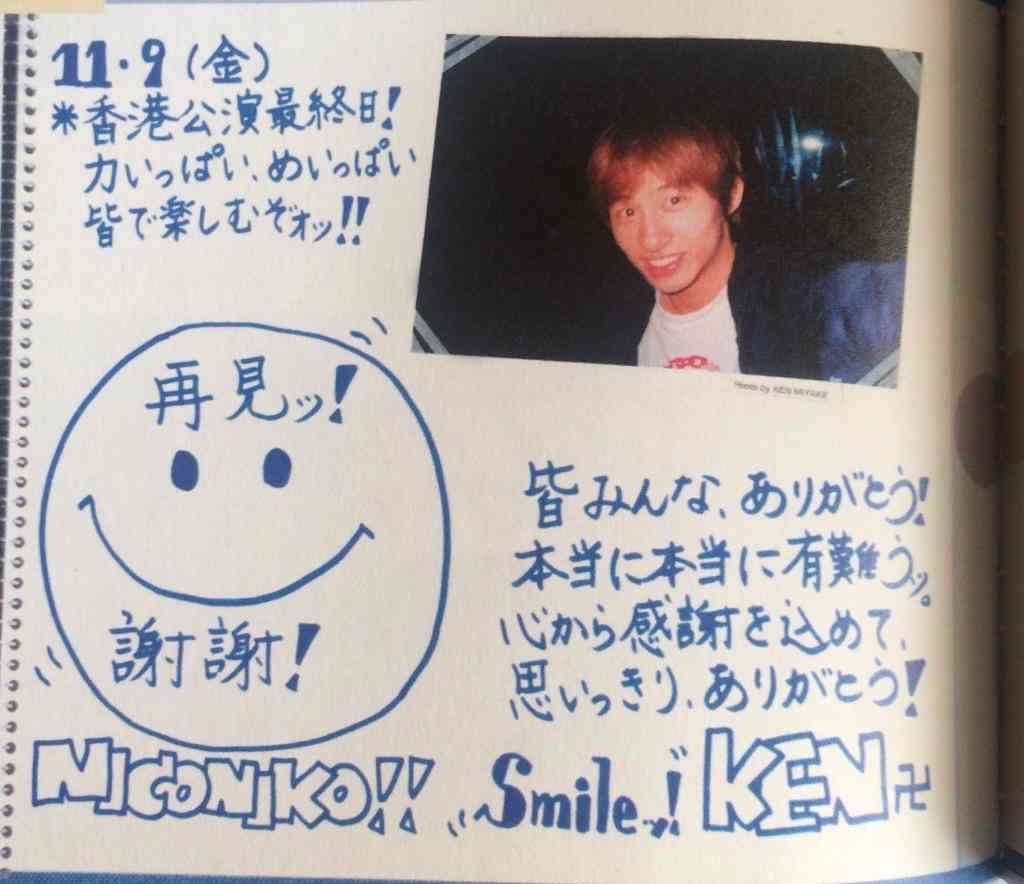 11・9(金)
*香港公演最終日!
力いっぱい、めいっぱい
皆で楽しむぞォッ!!
Photo by KEN MIYAKE
再見ッ!
謝謝!
皆みんな、ありがとう!
本当に本当に有難うッ。
心から感謝を込めて、
思いっきり、ありがとう!
NICONIKO!! Smileッ! KEN卍